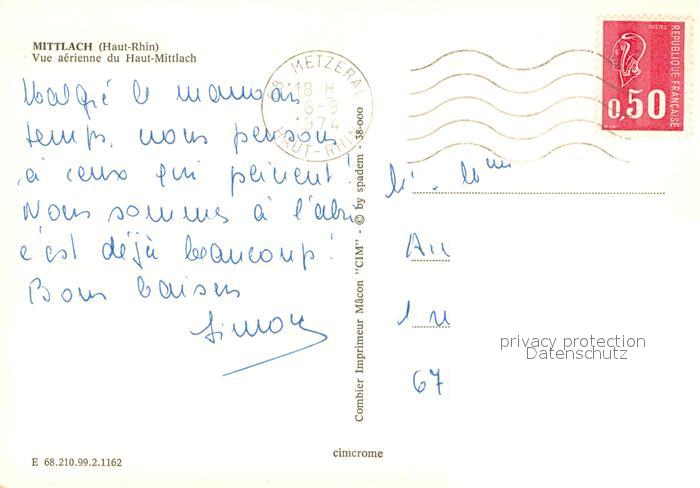 MITTLACH (Haut-Rhin)
Vue aérienne du Haut-Mittlach
Malgré le mauvais
temps, nous pensons
à ceux qui peinent!
Nous sommes à l'abri
c'est déjà beaucoup!
Bons baisers
Simon
68 METZERAL
18 H
6-9
1974
HAUT-RHIN
POSTES
REPUBLIQUE FRANÇAISE
0,50
Combier Imprimeur Mâcon "CIM" - © by spadem - 38-000
67
privacy protection
Datenschutz
cimcrome
E 68.210.99.2.1162